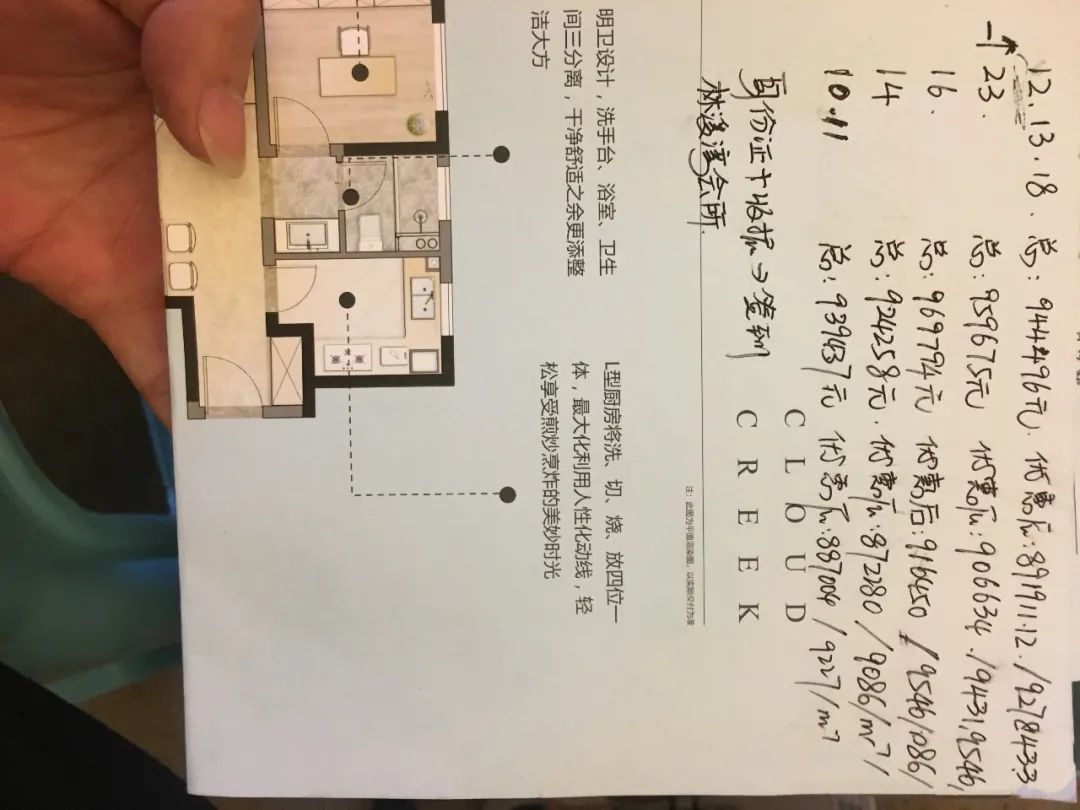 12.13.18. 总:944496元. 优惠后:891911.12./9278433
23. 总:959675元 优惠后:906634./9431,9546,
16. 总:969794元 优惠后:916450/9546,1086/
14 总:924258元.优惠后:872280/9086/m²/
10.11 总:939437元 优惠后:887004/9227/m²
CLOUD
身份证+收据→签到 CREEK
会所.
注:此图为平面渲染图,以实际交付为准
明卫设计,洗手台、浴室、卫生
间三分离,干净舒适之余更添整
洁大方
L型厨房将洗、切、烧、放四位一
体,最大化利用人性化动线,轻
松享受煎炒烹炸的美妙时光